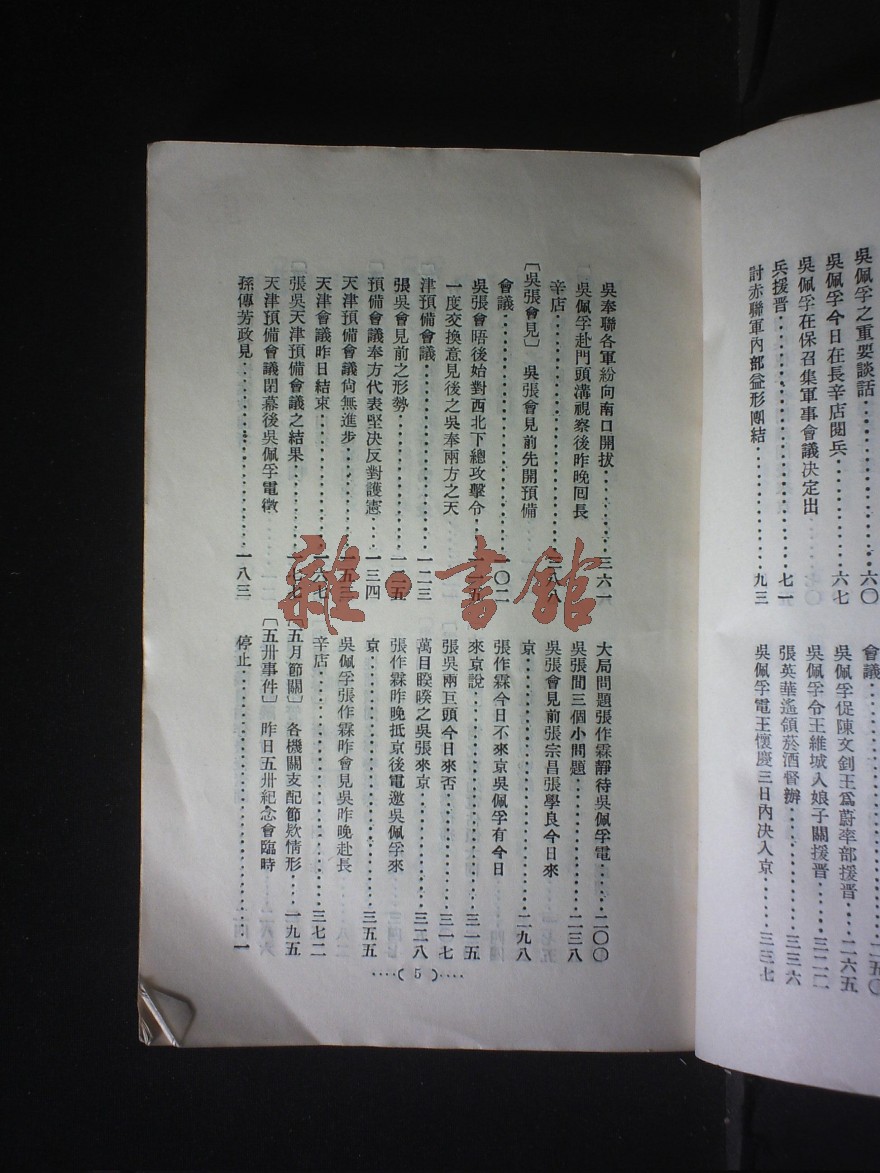 吳佩孚之重要談話……六〇
吳佩孚今日在長辛店閱兵……六七
吳佩孚在保召集軍事會議決定出
兵援晋……七一
討赤聯軍內部益形團結……九三
會議……二五〇
吳佩孚促陳文釗王爲蔚率部援晋……二六五
吳佩孚令王維城入娘子關援晋……三二二
張英華遙領菸酒督辦……三三六
吳佩孚電王懷慶三日內決入京……三三七
吳奉聯各軍紛向南口開拔……三六一
吳佩孚赴門頭溝視察後昨晚回長
辛店……三八八
〔吳張會見〕 吳張會見前先開預備
會議……一〇二
吳張會晤後始對西北下總攻擊令……一一五
一度交換意見後之吳奉兩方之天
津預備會議……一二三
張吳會見前之形勢……一二五
預備會議奉方代表堅決反對護憲……一三四
天津預備會議尙無進步……一五三
天津會議昨日結束……一六七
張吳天津預備會議之結果……一七七
天津預備會議閉幕後吳佩孚電徵
孫傳芳政見……一八三
大局問題張作霖靜待吳佩孚電……二〇〇
吳張間三個小問題……二三八
吳張會見前張宗昌張學良今日來
京……二九八
張作霖今日不來京吳佩孚有今日
來京說……三一五
張吳兩巨頭今日來否……三一七
萬目睽睽之吳張來京……三二八
張作霖昨晚抵京後電邀吳佩孚來
京……三五五
吳佩孚張作霖昨會見吳昨晚赴長
辛店……三七二
〔五月節關〕 各機關支配節欵情形……一九五
〔五卅事件〕 昨日五卅紀念會臨時
停止……一
….( 5 )….
雜·書館